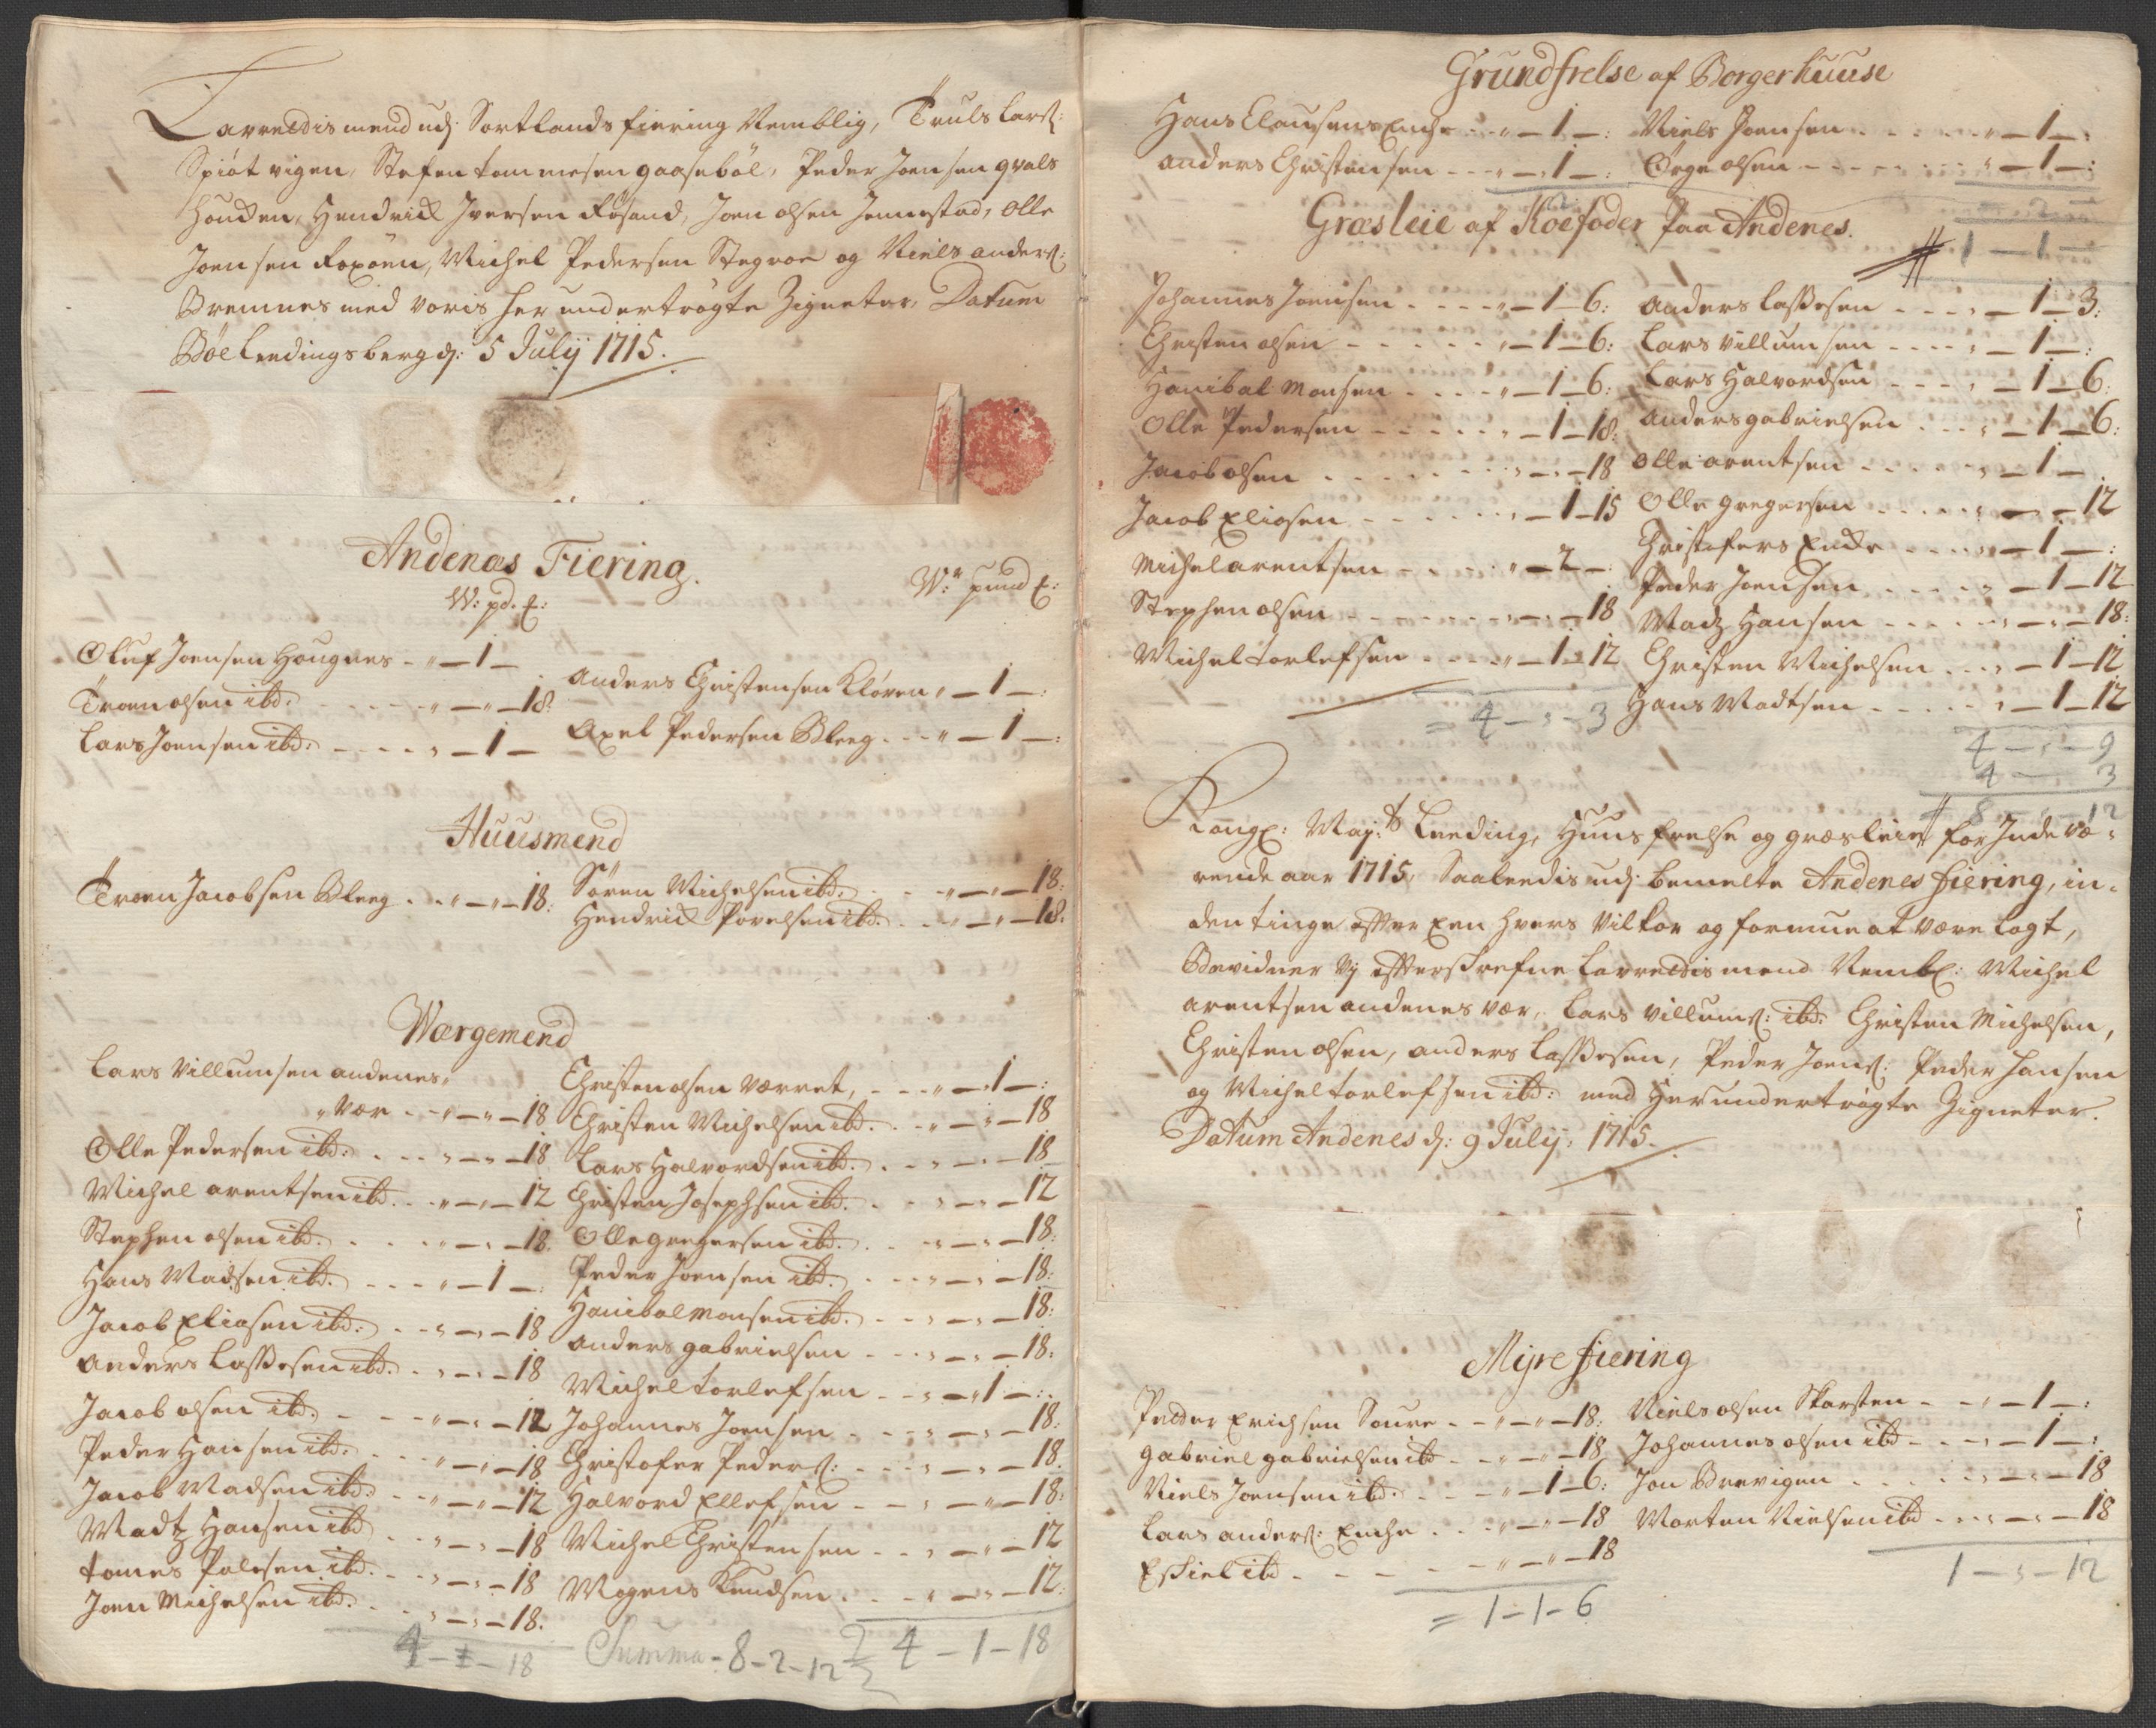 Laurettis mend udj Sortlands fiering Nemblig, Truls Larß:
Spiøt vigen, Stefen tommesen gaasebøl, Peder Joensen qvals
houken, Hendrick Iversen Røsand, Joen olsen Jennestad, Olle
Joensen Roxøen, Michel Pedersen Stegroe og Niels anderß:
Bremnes med voris her undertrøgte Zigneter, Datum
Bøe Leedingsberg d: 5 Julij 1715.
Andenæs Fiering.
W: pd. ℔:
Oluf Joensen Hougnes - „ – 1 –
Troen olsen ibd. - - - „ – „ – 18
Lars Joensen ibd. - - - „ – 1 –
W: pund ℔:
Anders Christensen Kløven „ – 1 – :
Axel Pedersen Bleeg - - „ – 1 – :
Huusmend
Troen Jacobsen Bleeg - - „ – „ – 18:
Søren Michelsen ibd. - - „ – „ – 18:
Hendrick Povelsen ibd. - - „ – „ – 18:
Wærgemend
Lars Villumsen andenes
„ Vær - - „ – „ – 18
Olle Pedersen ibd: - - - „ – „ – 18
Michel arentsen ibd. - - „ – „ – 12
Stephen olsen ibd. - - - „ – „ – 18.
Hans Madsen ibd. - - - „ – 1 – :
Jacob Eliasen ibd: - - „ – „ – 18
Anders Lassesen ibd. - - „ – „ – 18
Jacob olsen ibd. - - - „ – „ – 12
Peder Hansen ibd. - - - „ – „ – 18
Jacob Madsen ibd: - - „ – „ – 12
Madtz Hansen ibd - - „ – „ – 18
tomes Polesen ibd. - - „ – „ – 18
Joen Michelsen ibd. - - „ – „ – 18.
4 – 1 – 18
Christen olsen Værret, - - - „ – 1 – :
Christen Michelsen ibd. - - „ – „ – 18
Lars Halvordsen ibd. - - „ – „ – 18
Christen Josephsen ibd. - - „ – „ – 12
Olle gregersen ibd. - - „ – „ – 18:
Peder Joensen ibd. - - - „ – „ – 18:
Hanibal Monsen ibd. - - „ – „ – 18:
Anders gabrielsen - - - „ – „ – 18:
Michel torlefsen - - „ – 1 – :
Johannes Joensen - - - „ – „ – 18:
Christofer Pederß: - - - „ – „ – 18.
Halvord Ellefsen - - „ – „ – 18:
Michel Christensen - - „ – „ – 12
Mogens Knudsen - - - „ – „ – 12:
Summa - 8 - 2 - 12
4 – 1 – 18
Grundfrelse af Borgerhuuse
Hans Clausens Enche - - „ – 1 – :
Anders Christensen - - „ – 1 – :
Niels Joensen - - - - „ – 1 – :
Ørge olsen - - - - „ – 1 – :
Græsleie af Koefoder paa Andenes.
1 – 1 –
Johannes Joensen - - - - „ – 1 – 6:
Christen olsen - - - - - „ – 1 – 6:
Hanibal Monsen - - - - „ – 1 – 6:
Olle Pedersen - - - - - „ – 1 – 18:
Jacob olsen - - - - - „ – „ – 18
Jacob Eliasen - - - - - „ – 1 – 15
Michel arentsen - - - - „ – 2 – :
Stephen olsen - - - - - „ – „ – 18
Michel torlefsen - - - - „ – 1 – 12
= 4 – „ – 3
Anders Lassesen - - - „ – 1 – 3:
Lars Villumsen - - - - „ – 1 – :
Lars Halvordsen - - - „ – 1 – 6:
Anders gabrielsen - - - „ – 1 – 6:
Olle arentsen - - - - „ – 1 –
Olle gregersen - - - - „ – „ – 12
Christofers Encke - - - „ – 1 – :
Peder Joensen - - - - „ – 1 – 12
Madtz Hansen - - - - „ – „ – 18:
Christen Michelsen - - „ – 1 – 12
Hans Madtsen - - - - „ – 1 – 12
4 – „ – 9
4 – „ 3
8 – „ – 12
Kongl: Maj:ts Leeding, Huusfrelse og græsleie for Inde væ-
rende aar 1715, Saaleedis udj bemelte Andenes fiering, in-
den tinge efter Een hvers vilkor og formue at være lagt,
Bevidner Vj efterskrefne Laurettis mend Nembl: Michel
arentsen andenes vær, Lars Villumß: ibd: Christen Michelsen,
Christen olsen, anders Lassesen, Peder Joenß: Peder Hansen
og Michel torlefsen ibd: med Herundertrøgte Zigneter.
Datum Andenes d: 9 Julij: 1715.
Myre fiering
Peder Erichsen Soure - - „ – „ – 18:
gabriel gabrielsen ibd - - „ – „ – 18
Niels Joensen ibd. - - - „ – 1 – 6:
Lars anderß: Enche - - - „ – „ – 18
Eskiel ibd - - - - - „ – „ – 18
= 1 – 1 – 6
Niels olsen Skarsten - - „ – 1 – :
Johannes olsen ibd - - - „ – 1 – :
Jon Brevigen - - - - „ – „ – 18
Morten Nielsen ibd - - - „ – „ – 18
1 – „ – 12